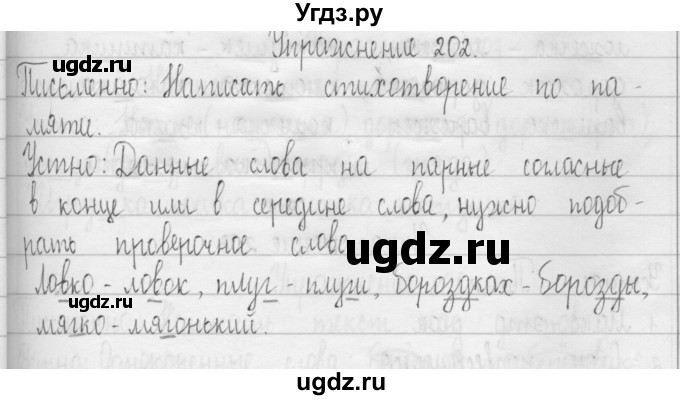 Угдз.ру
Упражнение 202.
gdz.ru
Письменно: Написать стихотворение по па-
мяти.
gdz.ru
Устно: Данные слова на парные согласные
в конце или в середине слова, нужно подоб-
рать проверочное слово
Ловко - ловок, плуг - плуги, бороздках - борозды,
мягко - мягонький.
ugdz.ru
ugdz.ru
ugdz.ru